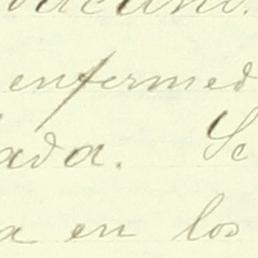 vacuno.
enfermed
ada. Se
a en los